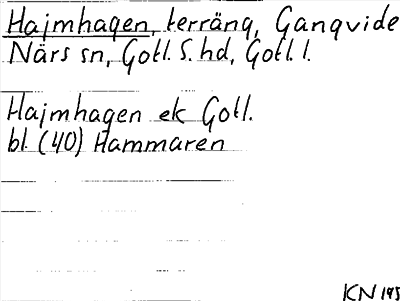 Hajmhagen, terräng, Gangvide
Närs sn, Gotl. S. hd, Gotl. l.
Hajmhagen ek Gotl.
bl. (40) Hammaren
KN 145